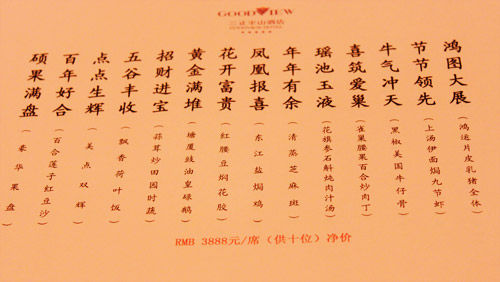 GOODVIEW
三正半山酒店
鸿图大展
（鸿运片皮乳猪全体）
节节领先
（上汤伊面焗九节虾）
牛气冲天
（黑椒美国牛仔骨）
喜筑爱巢
（雀巢腰果百合炒肉丁）
瑶池玉液
（花旗参石斛炖肉汁汤）
年年有余
（清蒸芝麻斑）
凤凰报喜
（东江盐焗鸡）
花开富贵
（红腰豆焖花胶）
黄金满堆
（塘厦豉油皇碌鹅）
招财进宝
（蒜茸炒田园时蔬）
五谷丰收
（飘香荷叶饭）
点点生辉
（美点双辉）
百年好合
（百合莲子红豆沙）
硕果满盘
（豪华果盘）
RMB 3888元/席（供十位）净价